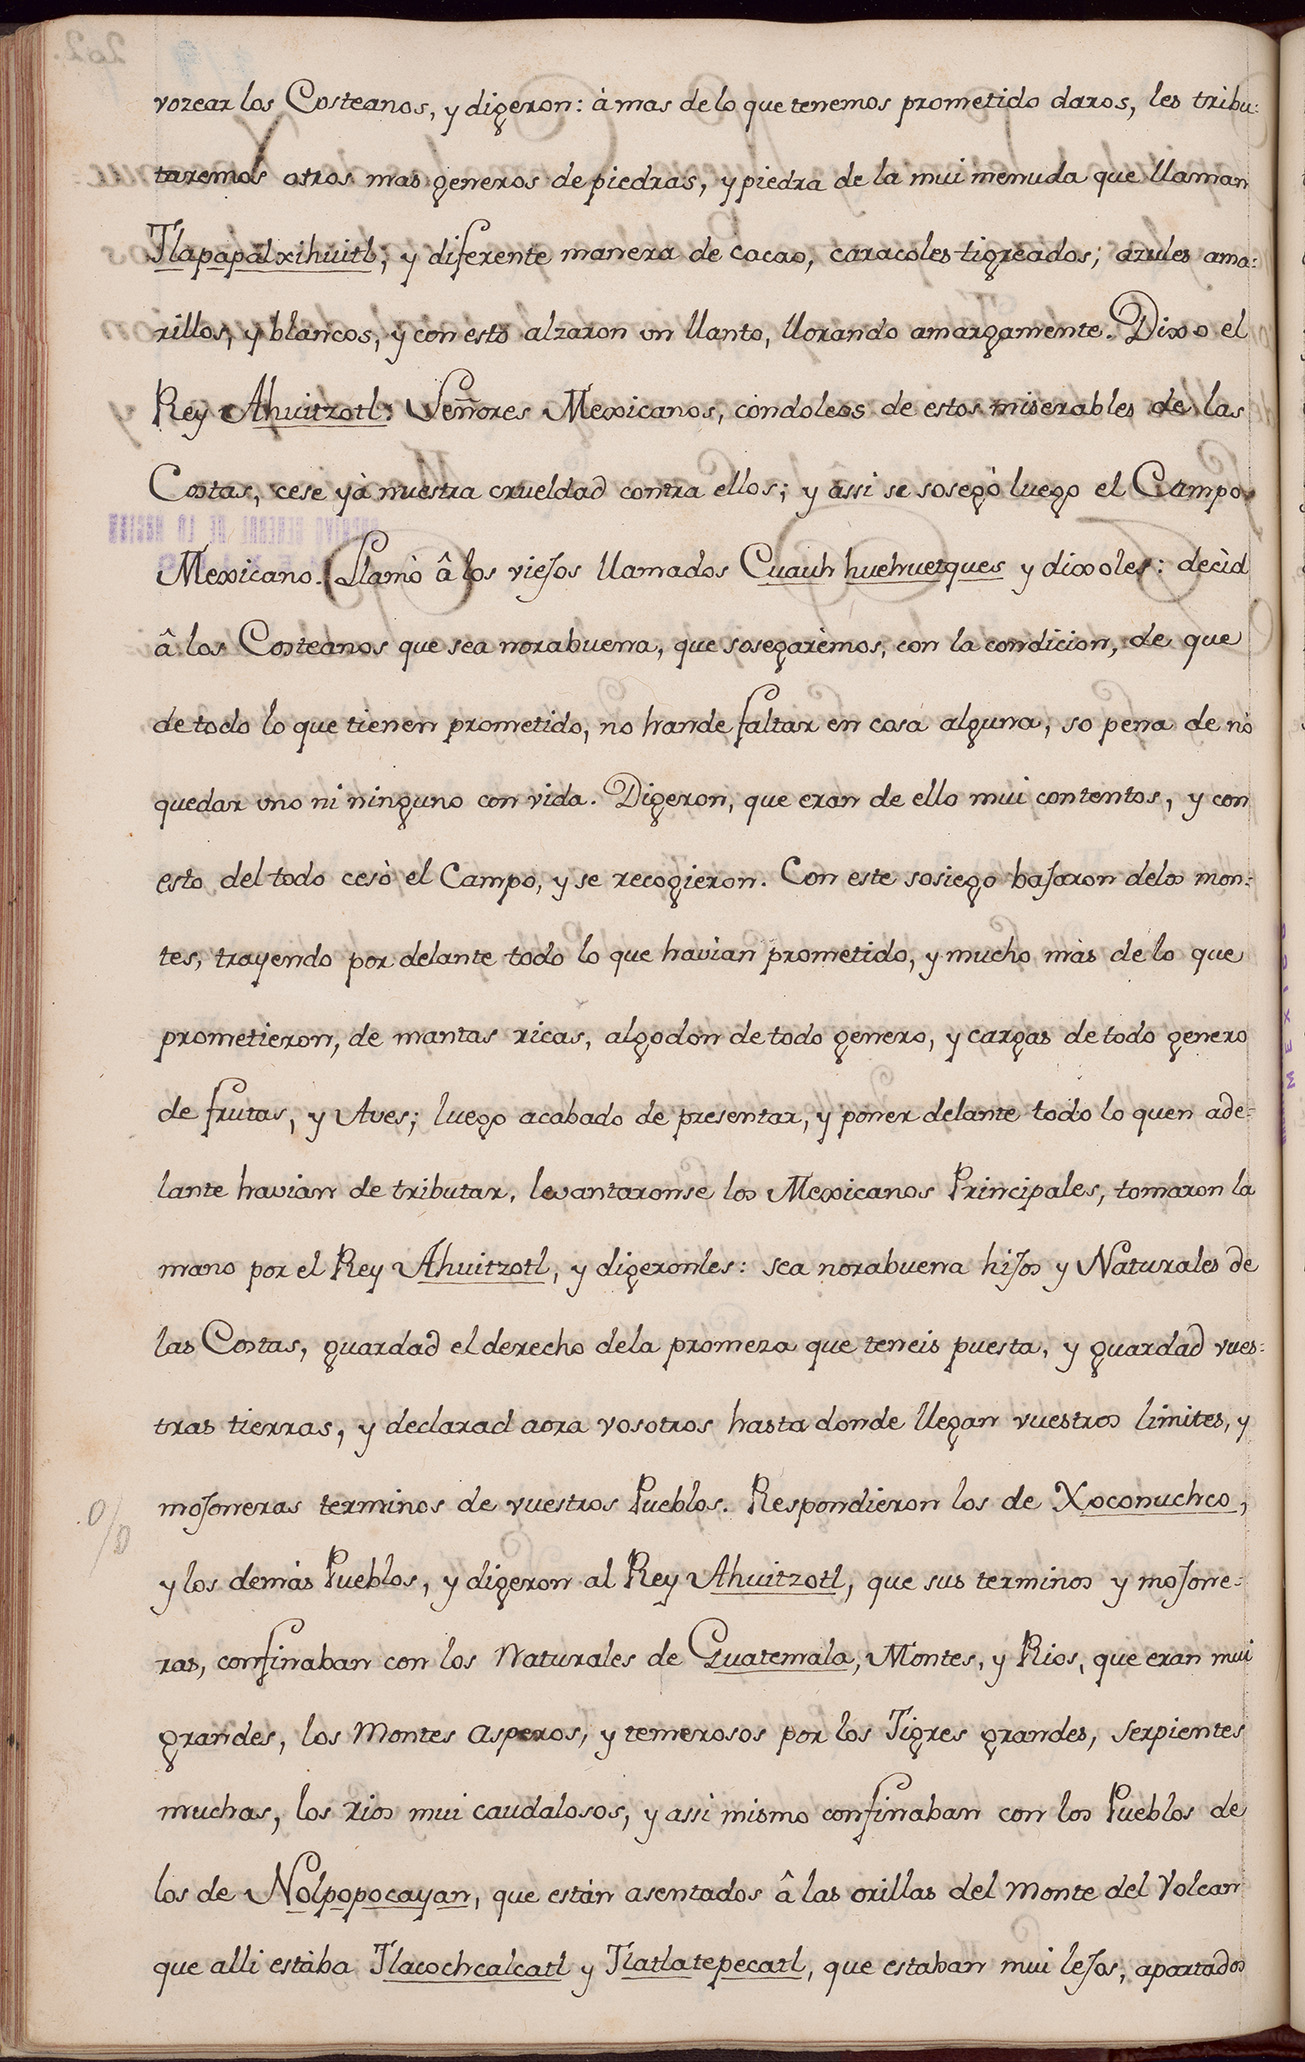 vozear los Costeanos, y digeron: à mas de lo que tenemos prometido daros, les tribu:
taremos otros mas generos de piedras, y piedra de la mui menuda que llaman
Tlapapalxihuitl; y diferente manera de cacao, caracoles tigreados; azules ama:
rillos, y blancos, y con esto alzaron un llanto, llorando amargamente. Dixo el
Rey Ahuitzotl: Señores Mexicanos, condoleos de estos miserables de las
Costas, cese yà nuestra crueldad contra ellos; y âssi se sosegò luego el Campo
Mexicano. Llamò â los viejos llamados Cuauh huehuetques y dixoles: decìd
â los Costeanos que sea norabuena, que sosegarèmos, con la condicion, de que
de todo lo que tienen prometido, no hande faltar en cosa alguna, so pena de nò
quedar uno ni ninguno con vida. Digeron, que eran de ello mui contentos, y con
esto del todo cesò el Campo, y se recogieron. Con este sosiego bajaron delos mon:
tes, trayendo por delante todo lo que havian prometido, y mucho màs de lo que
prometieron, de mantas ricas, algodon de todo genero, y cargas de todo genero
de frutas, y Aves; luego acabado de presentar, y poner delante todo lo quen ade:
lante havian de tributar, levantaronse los Mexicanos Principales, tomaron la
mano por el Rey Ahuitzotl, y digeronles: sea norabuena hijos y Naturales de
las Costas, guardad el derecho dela promeza que teneis puesta, y guardad vues:
tras tierras, y declarad aora vosotros hasta donde llegan vuestros limites, y
mojoneras terminos de vuestros Pueblos. Respondieron los de Xoconuchco,
y los demàs Pueblos, y digeron al Rey Ahuitzotl, que sus terminos y mojone:
ras, confinaban con los Naturales de Guatemala, Montes, y Rios, que eran mui
grandes, los Montes asperos, y temerosos por los Tigres grandes, serpientes
muchas, los rios mui caudalosos, y assi mismo confinaban con los Pueblos de
los de Nolpopocayan, que estàn asentados â las orillas del Monte del Volcan
que alli estàba Tlacochcalcatl y Tlatlatepecatl, que estaban mui lejos, apartados